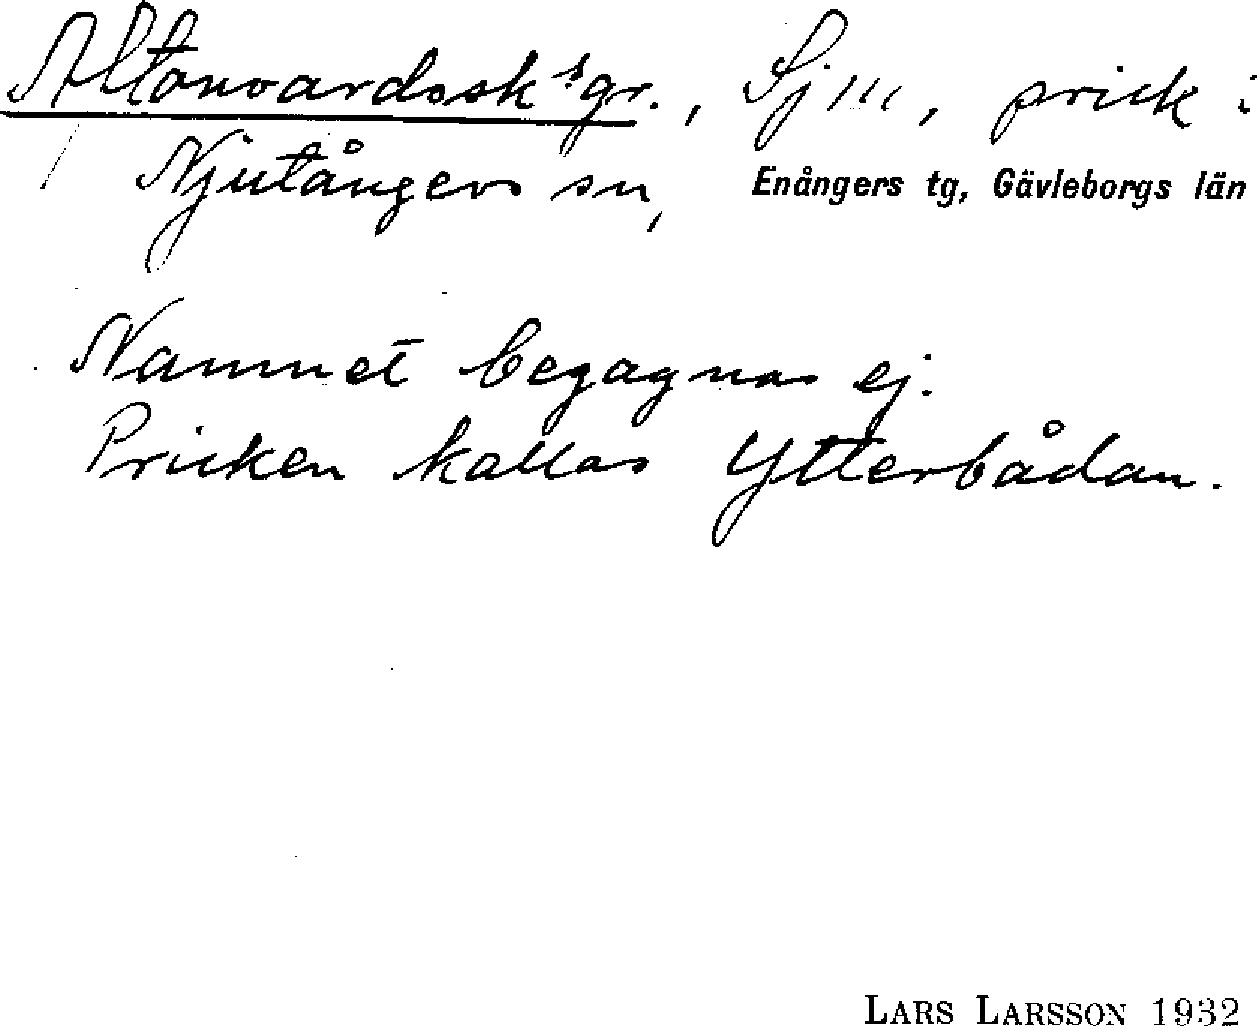 Altonvardssk:sgr., Sjm, prick i
Njutångers sn, Enångers tg, Gävleborgs län
Namnet begagnas ej.
Pricken kallas Ytterbådan.
LARS LARSSON 1932